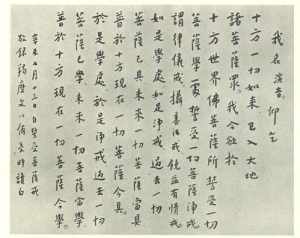 我名演音仰乞
十方一切如來已入大地
諸菩薩眾我今欲於
十方世界佛菩薩所誓受一切
菩薩學處誓受一切菩薩淨戒
謂律儀戒攝善法戒饒益有情戒
如是學處如是淨戒過去一切
菩薩已具未來一切菩薩當具
普於十方現在一切菩薩今具
於是學處於是淨戒過去一切
菩薩已學未來一切菩薩當學
普於十方現在一切菩薩今學